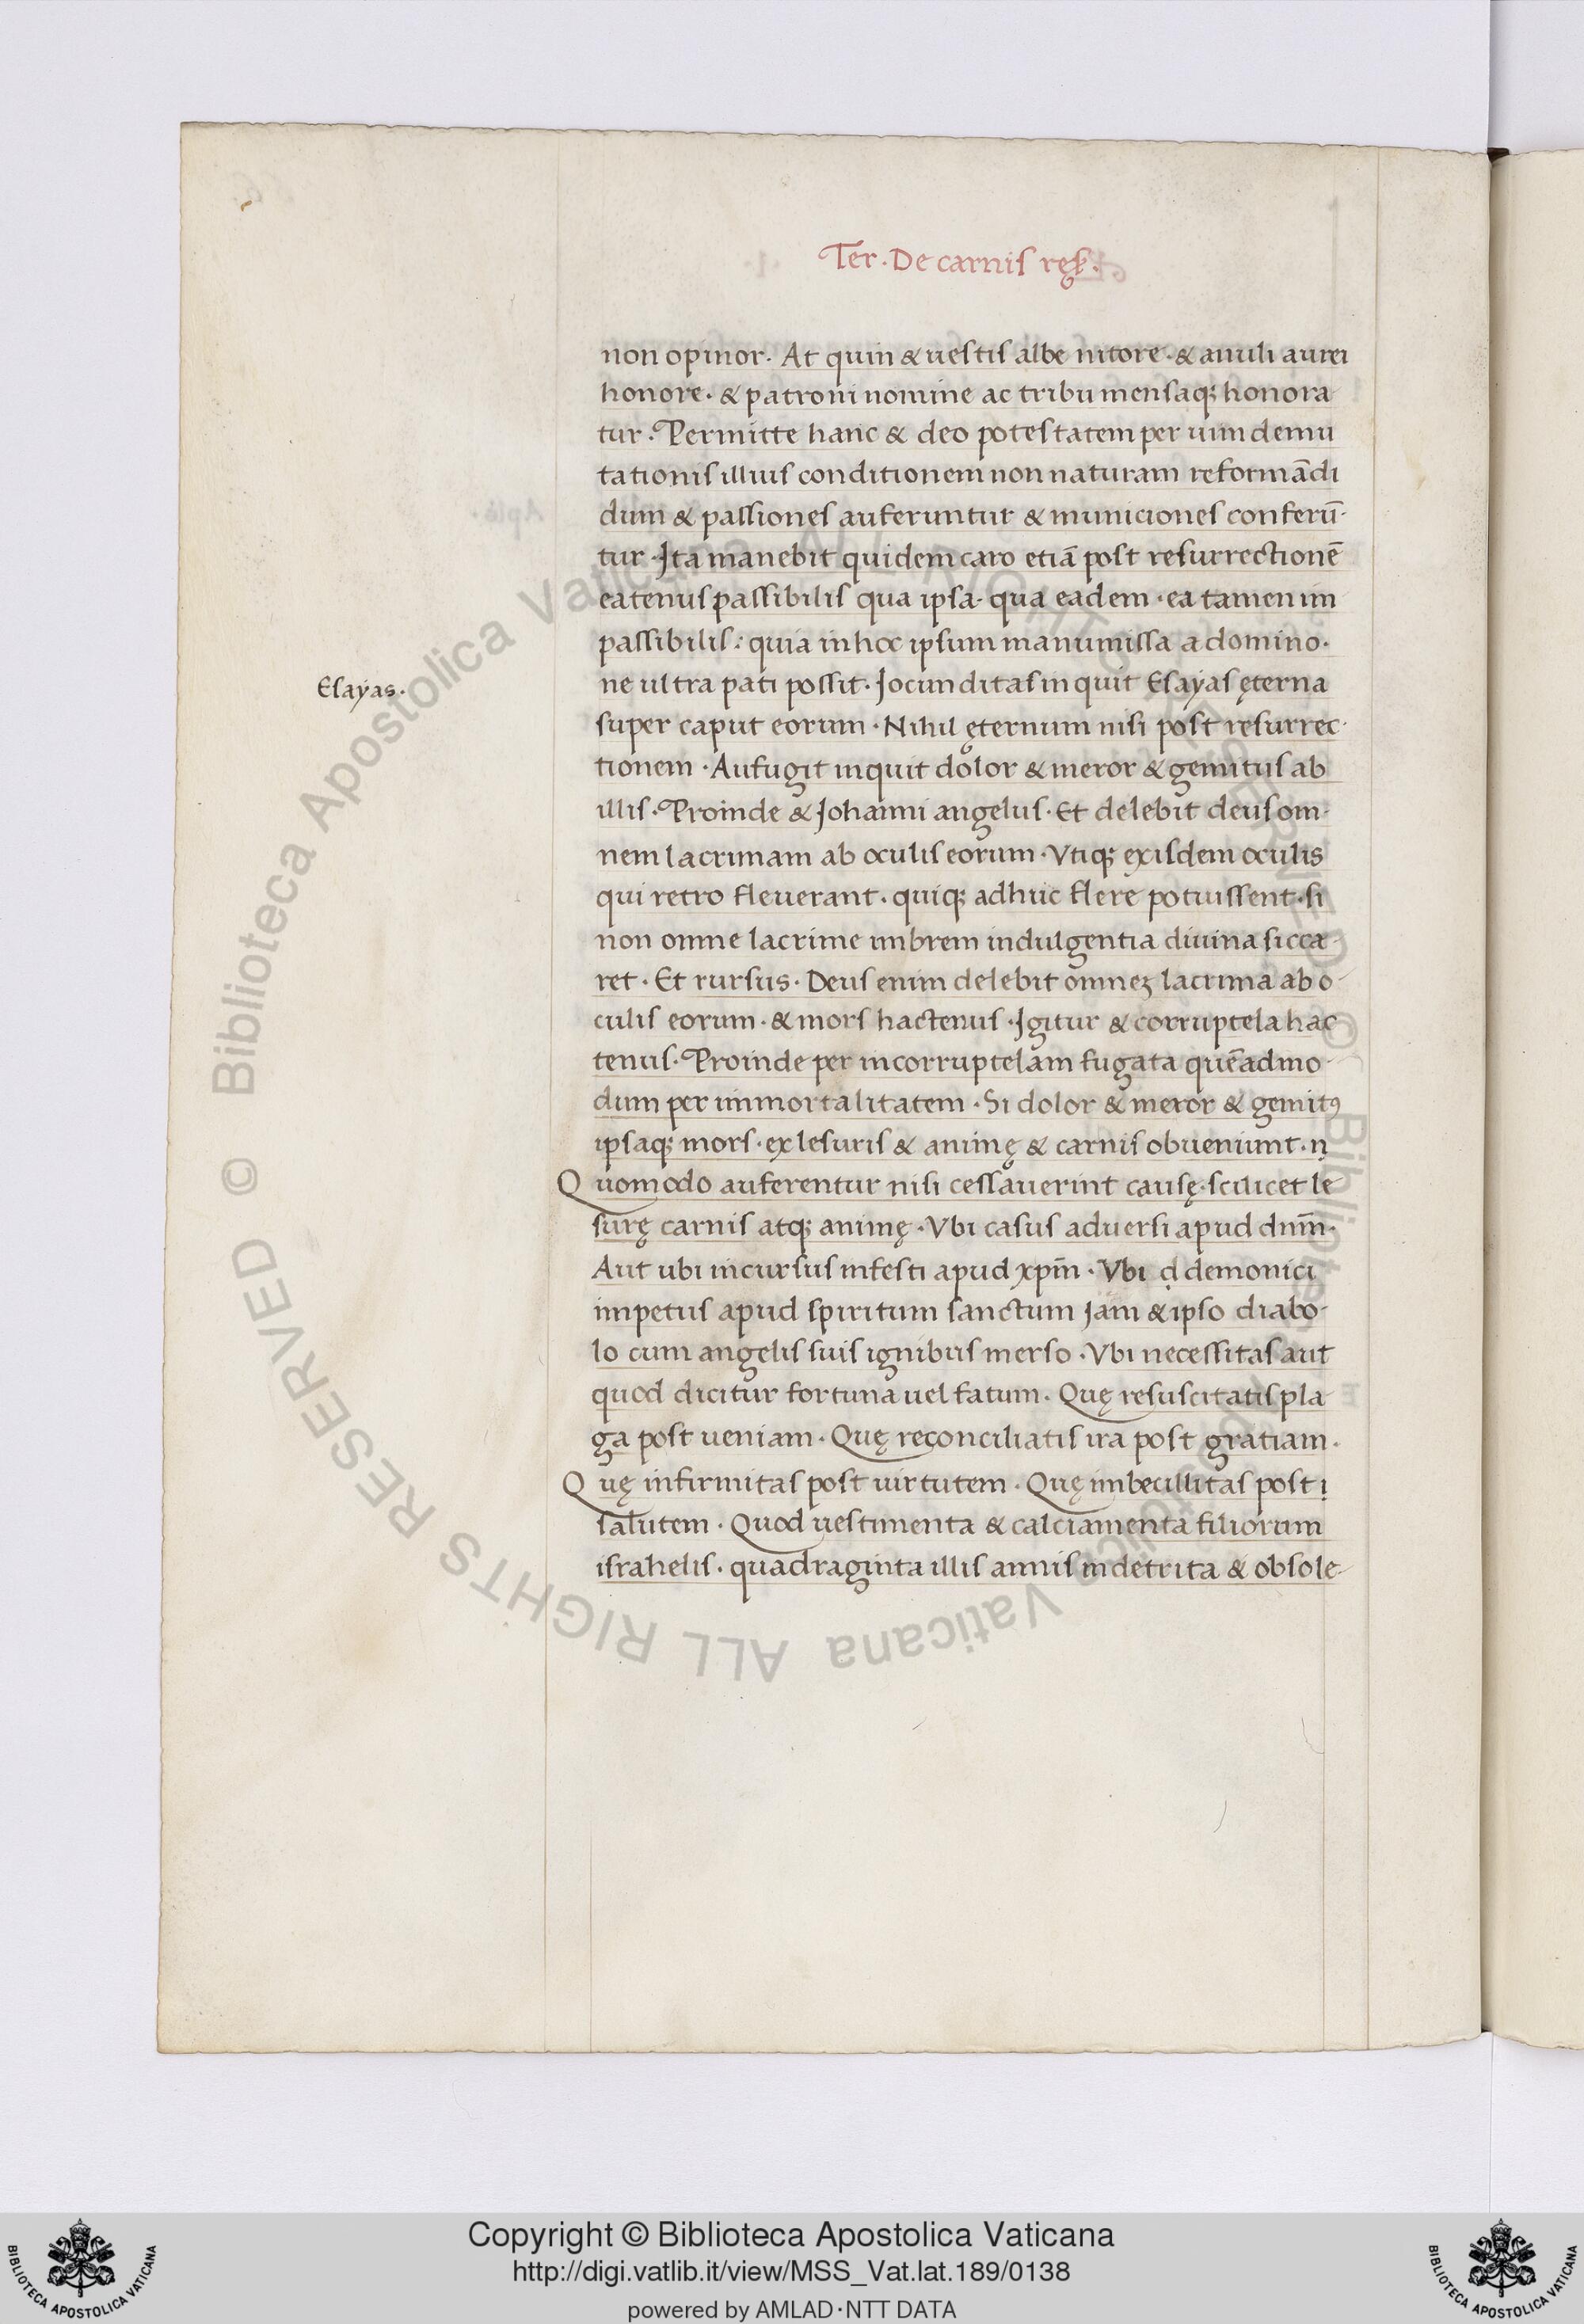 Ter. De carnis reẹſ.
non opinor. At quin & uestis albe nitore. & anuli aurei
honore. & patroni nomine ac tribu mensaq; honora
tur. Permitte hanc & deo potestatem per uim demu
tationis illius conditionem non naturam reformādi
dum & passiones auferuntur & municiones conferū-
tur. Ita manebit quidem caro etiā post resurrectionē
eatenus passibilis qua ipsa. qua eadem. ea tamen im
passibilis: quia in hoc ipsum manumissa a domino.
ne ultra pati possit. Jocunditas inquit Esayas ęterna
Esayas.
super caput eorum. Nihil ęternum nisi post resurrec-
tionem. Aufugit inquit dolor & meror & gemitus ab
illis. Proinde & Johanni angelus. Et delebit deus om-
nem lacrimam ab oculis eorum. Vtiq; ex isdem oculis
qui retro fleuerant. quiq; adhuc flere potuissent. si
non omne lacrime imbrem indulgentia diuina sicca-
ret. Et rursus. Deus enim delebit omnez lacrima ab o-
culis eorum. & mors hactenus. Igitur & corruptela hac
tenus. Proinde per incorruptelam fugata quēadmo-
dum per immortalitatem. Si dolor & meror & gemitꝰ
ipsaq; mors. ex lesuris & animę & carnis obueniunt. ṇ
Quomodo auferentur nisi cessauerint causę. scilicet le
surę carnis atq; animę. Vbi casus aduersi apud dnm̄.
Aut ubi incursus infesti apud xpm̄. Vbi ḍ demonici
impetus apud spiritum sanctum jam & ipso diabo-
lo cum angelis suis ignibus merso. Vbi necessitas aut
quod dicitur fortuna uel fatum. Quę resuscitatis pla
ga post ueniam. Quę reconciliatis ira post gratiam.
Quę infirmitas post uirtutem. Quę imbecillitas post ị
salutem. Quod uestimenta & calciamenta filiorum
israhelis. quadraginta illis annis indetrita & obsole-
© Biblioteca Apostolica Vaticana ALL RIGHTS RESERVED
Copyright © Biblioteca Apostolica Vaticana
http://digi.vatlib.it/view/MSS_Vat.lat.189/0138
powered by AMLAD·NTT DATA
BIBLIOTECA APOSTOLICA VATICANA
BIBLIOTECA APOSTOLICA VATICANA